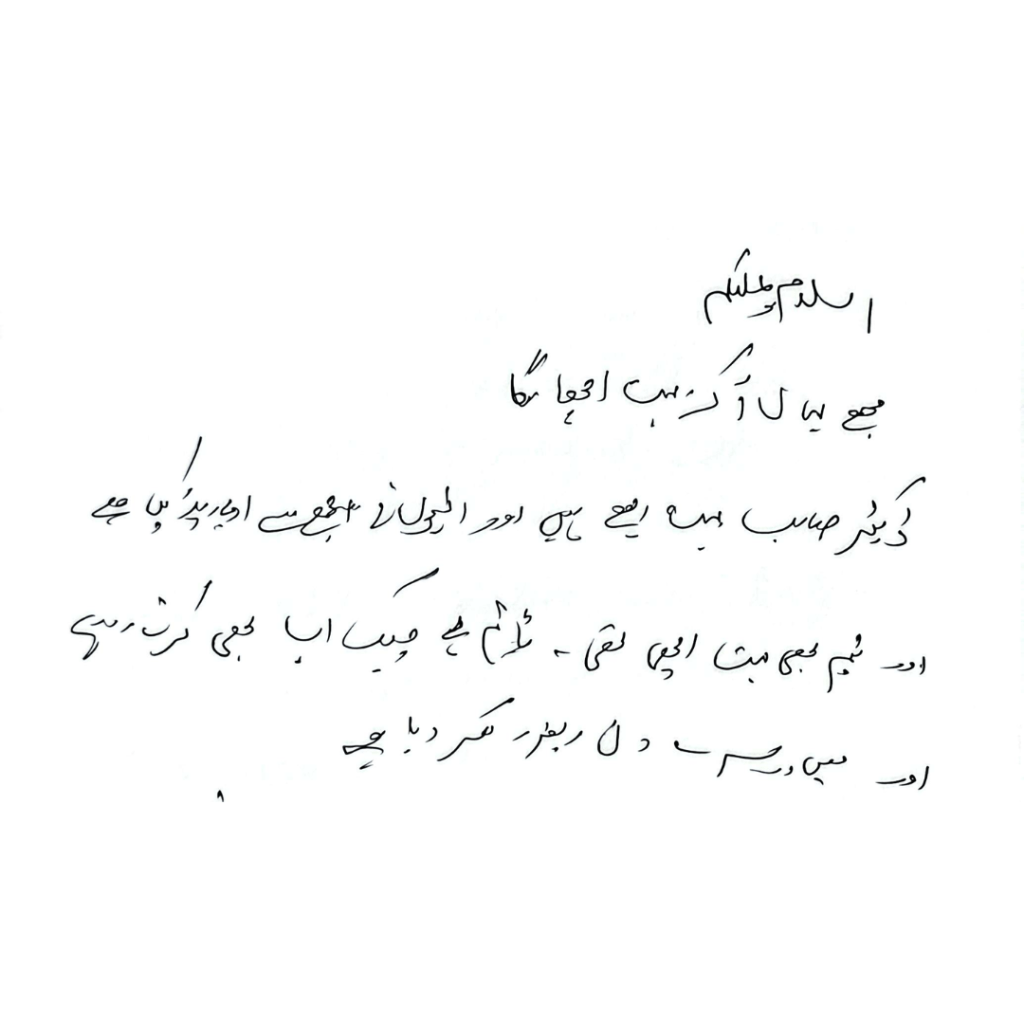 اسلام وعلیکم
مجھے یہاں آکر بہت اچھا لگا
ڈاکٹر صاحب بہت اچھے ہیں اور انہوں نے اچھے سے اوپریٹ کیا ہے
اور ٹیم بھی بہت اچھی تھی - ٹائم پے چیک اپ بھی کرتے رہے
اور میں دوسرے دن کر دیا ہے